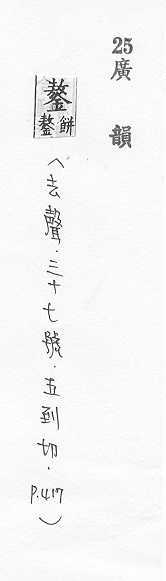 25廣韻
鏊
鏊餅
(去聲.三十七號.五到切.P.417)